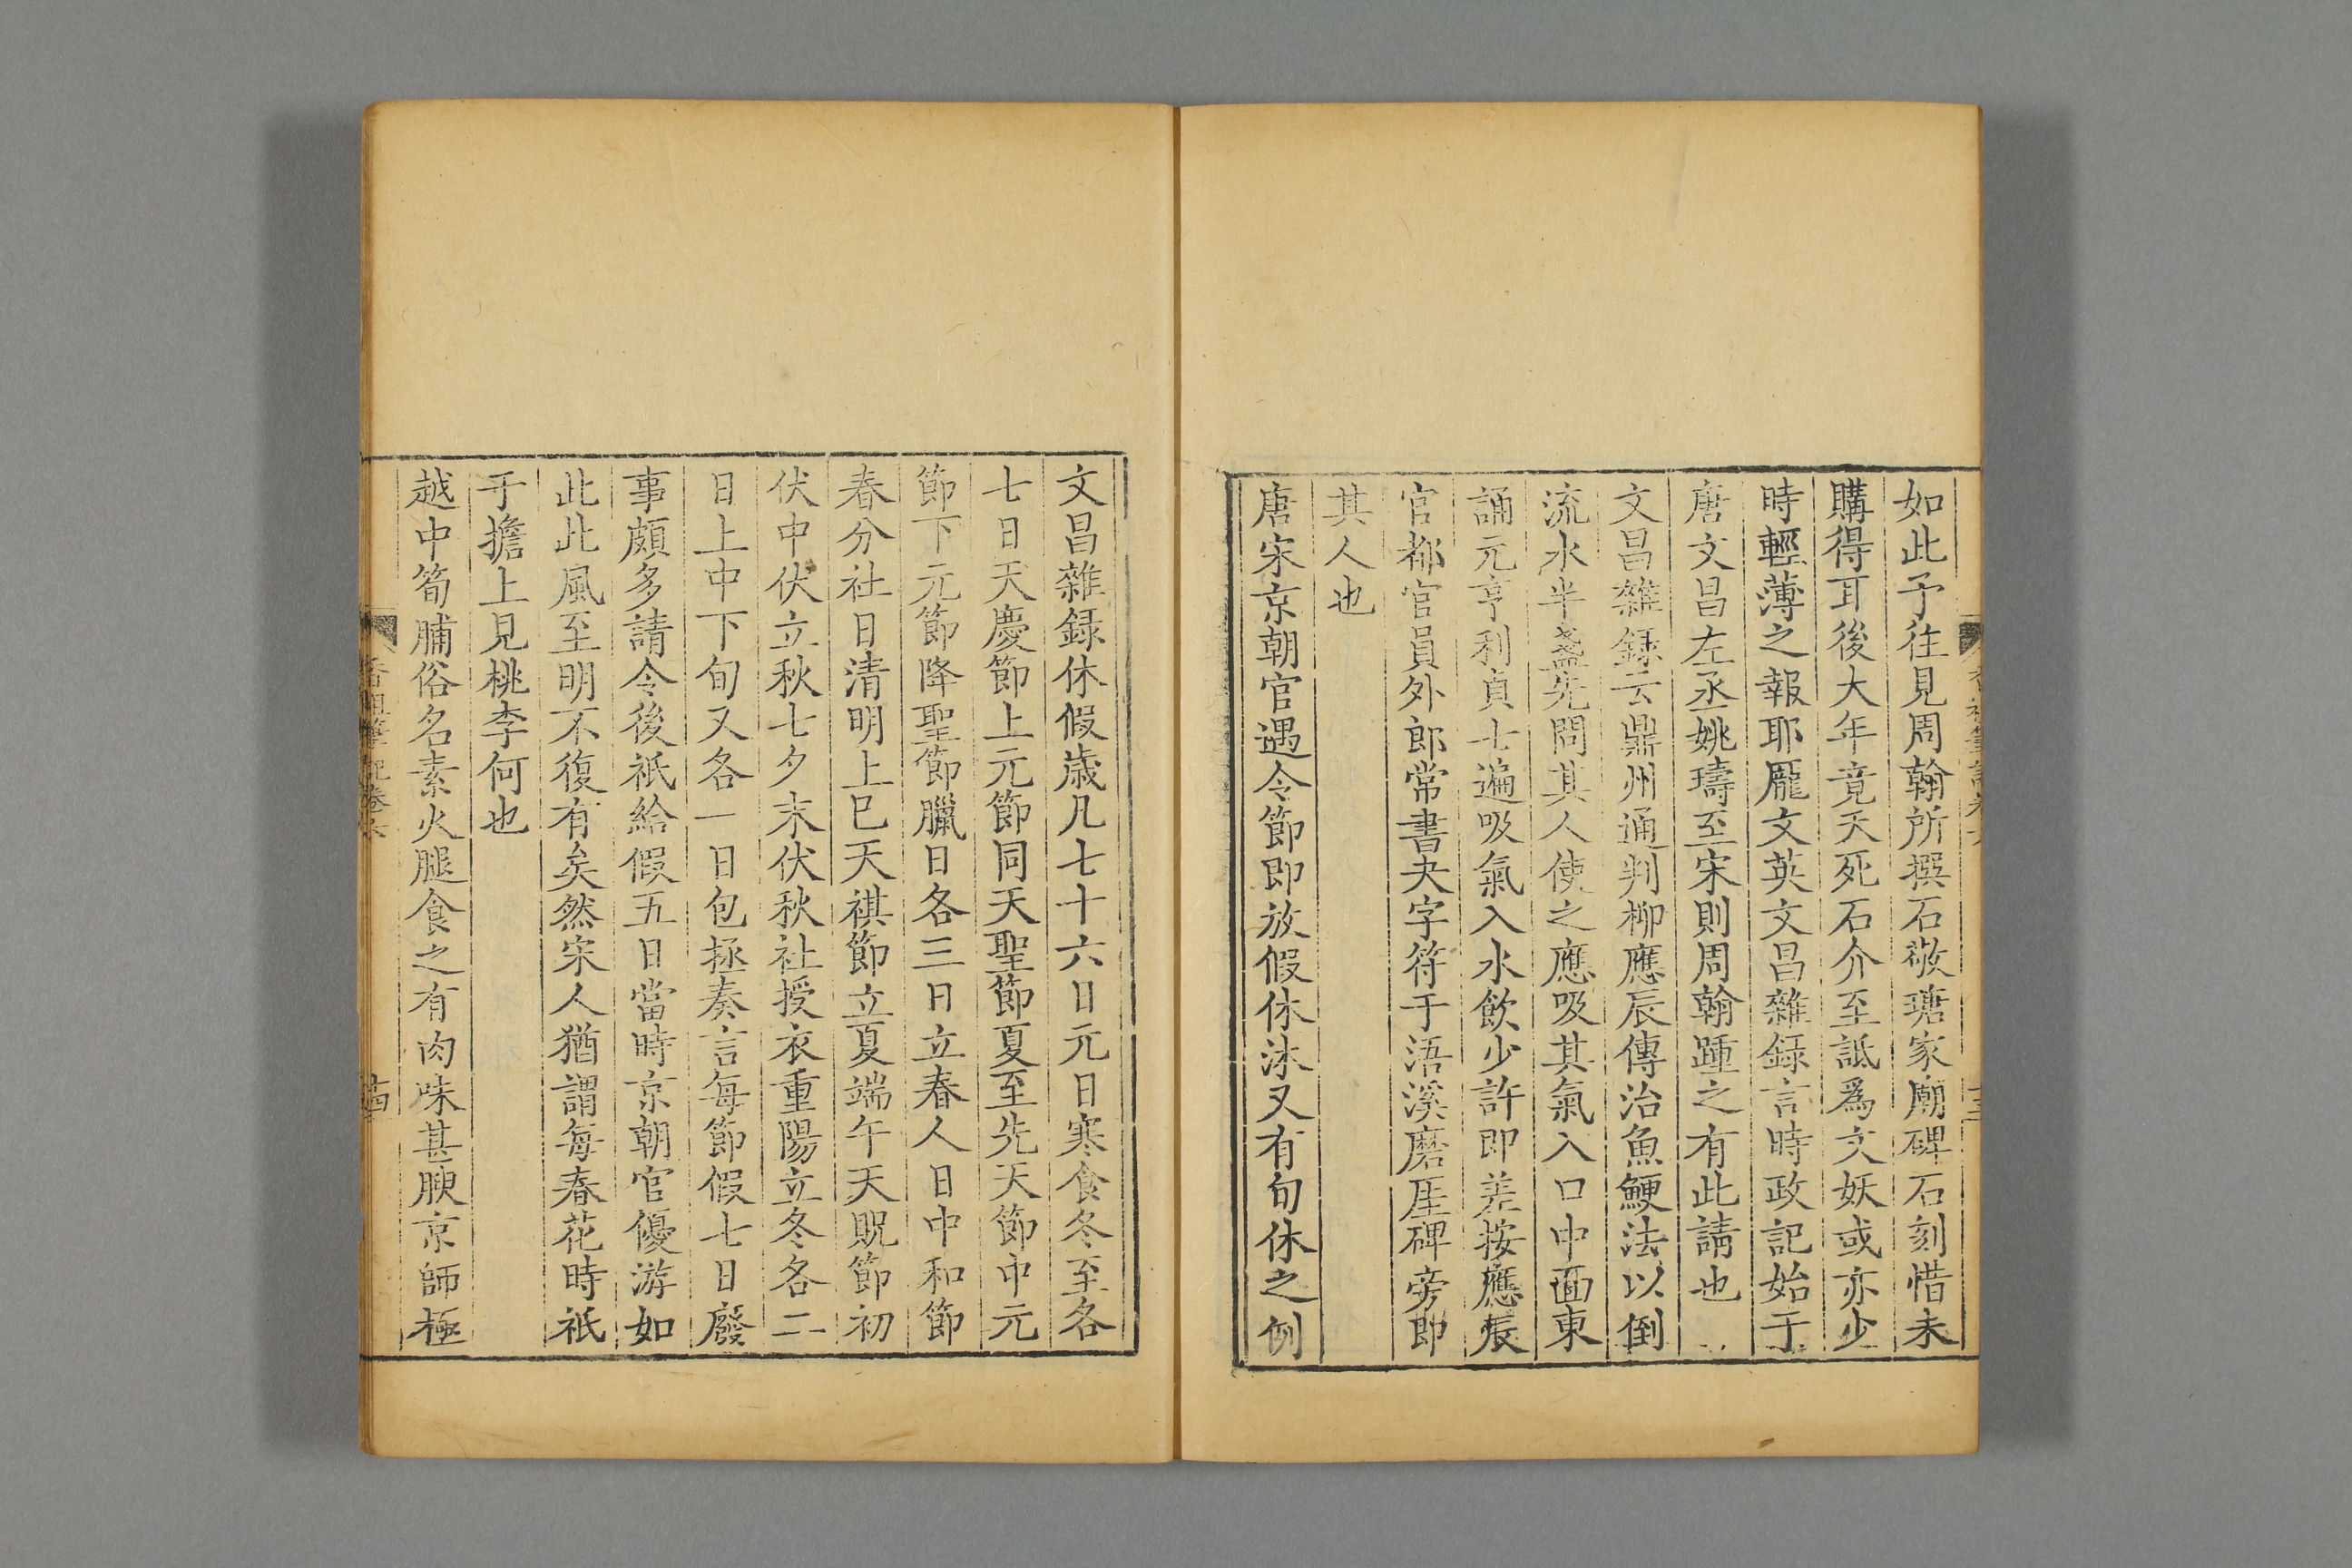 如此予往見周翰所撰石敬瑭家廟碑石刻惜未
購得耳後大年竟夭死石介至詆爲文妖或亦少
時輕薄之報耶龎文英文昌雜録言時政記始于
唐文昌左丞姚璹至宋則周翰踵之有此請也
文昌雜録云鼎州通判柳應辰傳治魚鯁法以倒
流水半盞先問其人使之應吸其氣入口中面東
誦元亨利貞七遍吸氣入水飲少許即差按應辰
官都官員外郎常書夬字符于浯溪磨厓碑旁即
其人也
唐宋京朝官遇令節即放假休沐又有旬休之例
文昌雜録休假歳凡七十六日元日寒食冬至各
七日天慶節上元節同天聖節夏至先天節中元
節下元節降聖節臘日各三日立春人日中和節
春分社日清明上巳天祺節立夏端午天貺節初
伏中伏立秋七夕末伏秋社授衣重陽立冬各二
日上中下旬又各一日包拯奏言每節假七日廢
事頗多請令後祇給假五日當時京朝官優游如
此此風至明不復有矣然宋人猶謂每春花時祇
于擔上見桃李何也
越中筍脯俗名素火腿食之有肉味甚腴京師極
香祖筆記卷六
十四